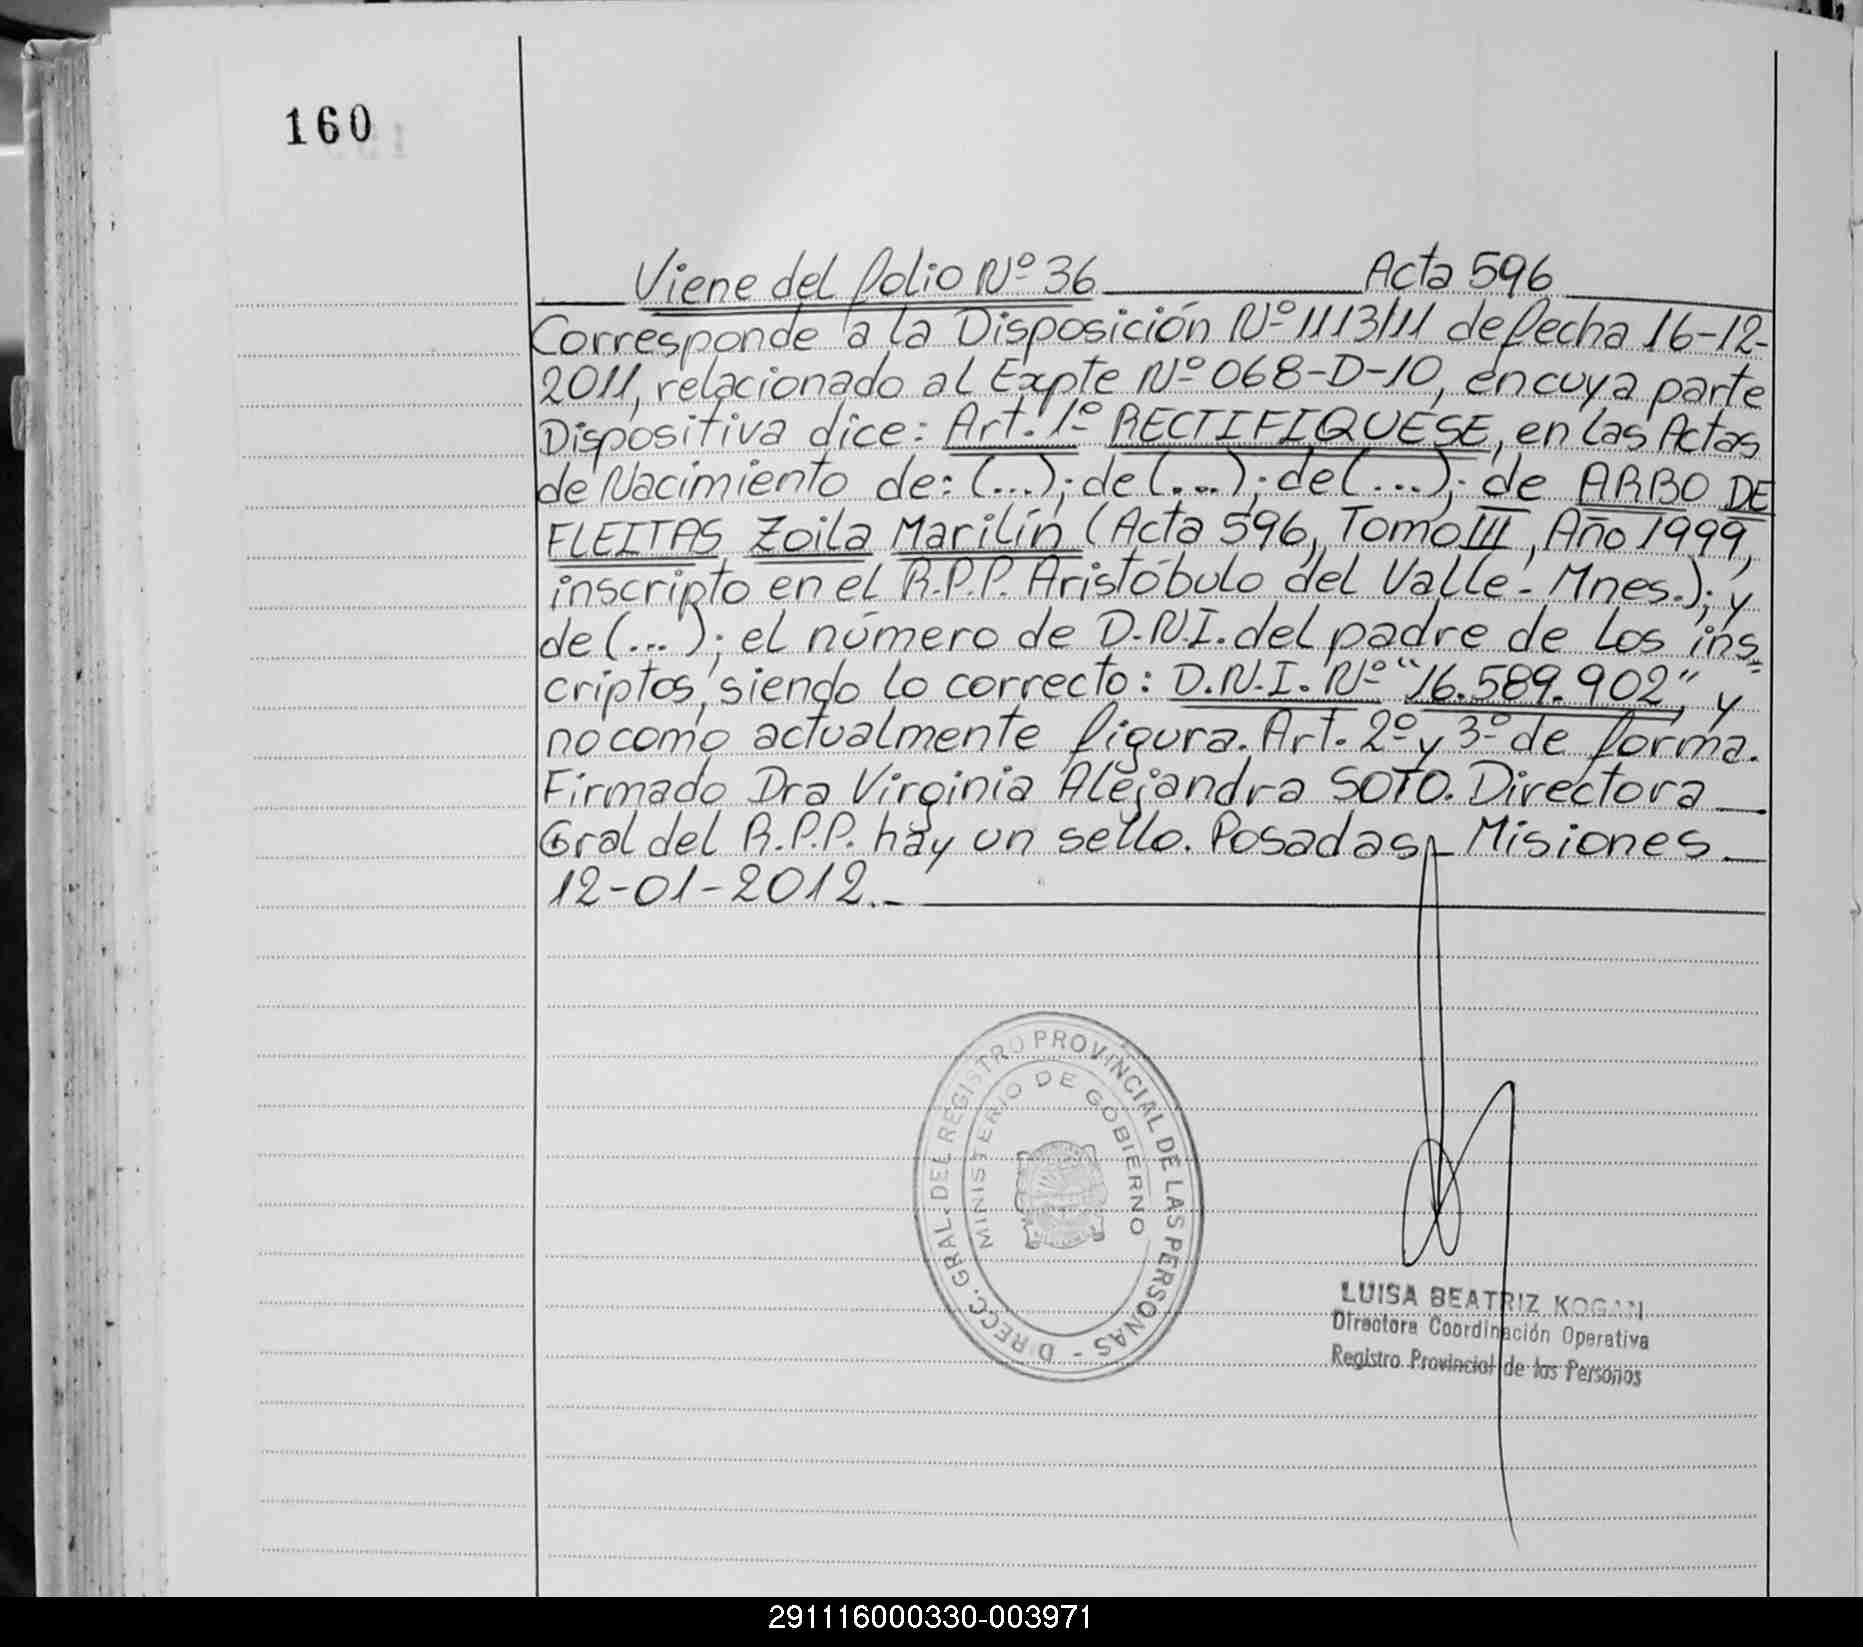 160
Viene del folio Nº 36 Acta 596
Corresponde a la Disposición Nº 1113/11 de fecha 16-12-
2011, relacionado al Expte Nº 068-D-10, en cuya parte
Dispositiva dice: Art. 1º RECTIFIQUESE, en las Actas
de Nacimiento de: (...); de (...); de (...); de ARBO DE
FLEITAS Zoila Marilín (Acta 596, Tomo III, Año 1999,
inscripto en el R.P.P. Aristóbulo del Valle - Mnes.); y
de (...); el número de D.N.I. del padre de los ins=
criptos, siendo lo correcto: D.N.I. Nº "16.589.902", y
no como actualmente figura. Art. 2º y 3º de forma.
Firmado Dra Virginia Alejandra SOTO. Directora
Gral del R.P.P. hay un sello. Posadas, Misiones
12-01-2012.-
DIRECC. GRAL. DEL REGISTRO PROVINCIAL DE LAS PERSONAS -
MINISTERIO DE GOBIERNO
LUISA BEATRIZ KOGAN
Directora Coordinación Operativa
Registro Provincial de las Personas
291116000330-003971